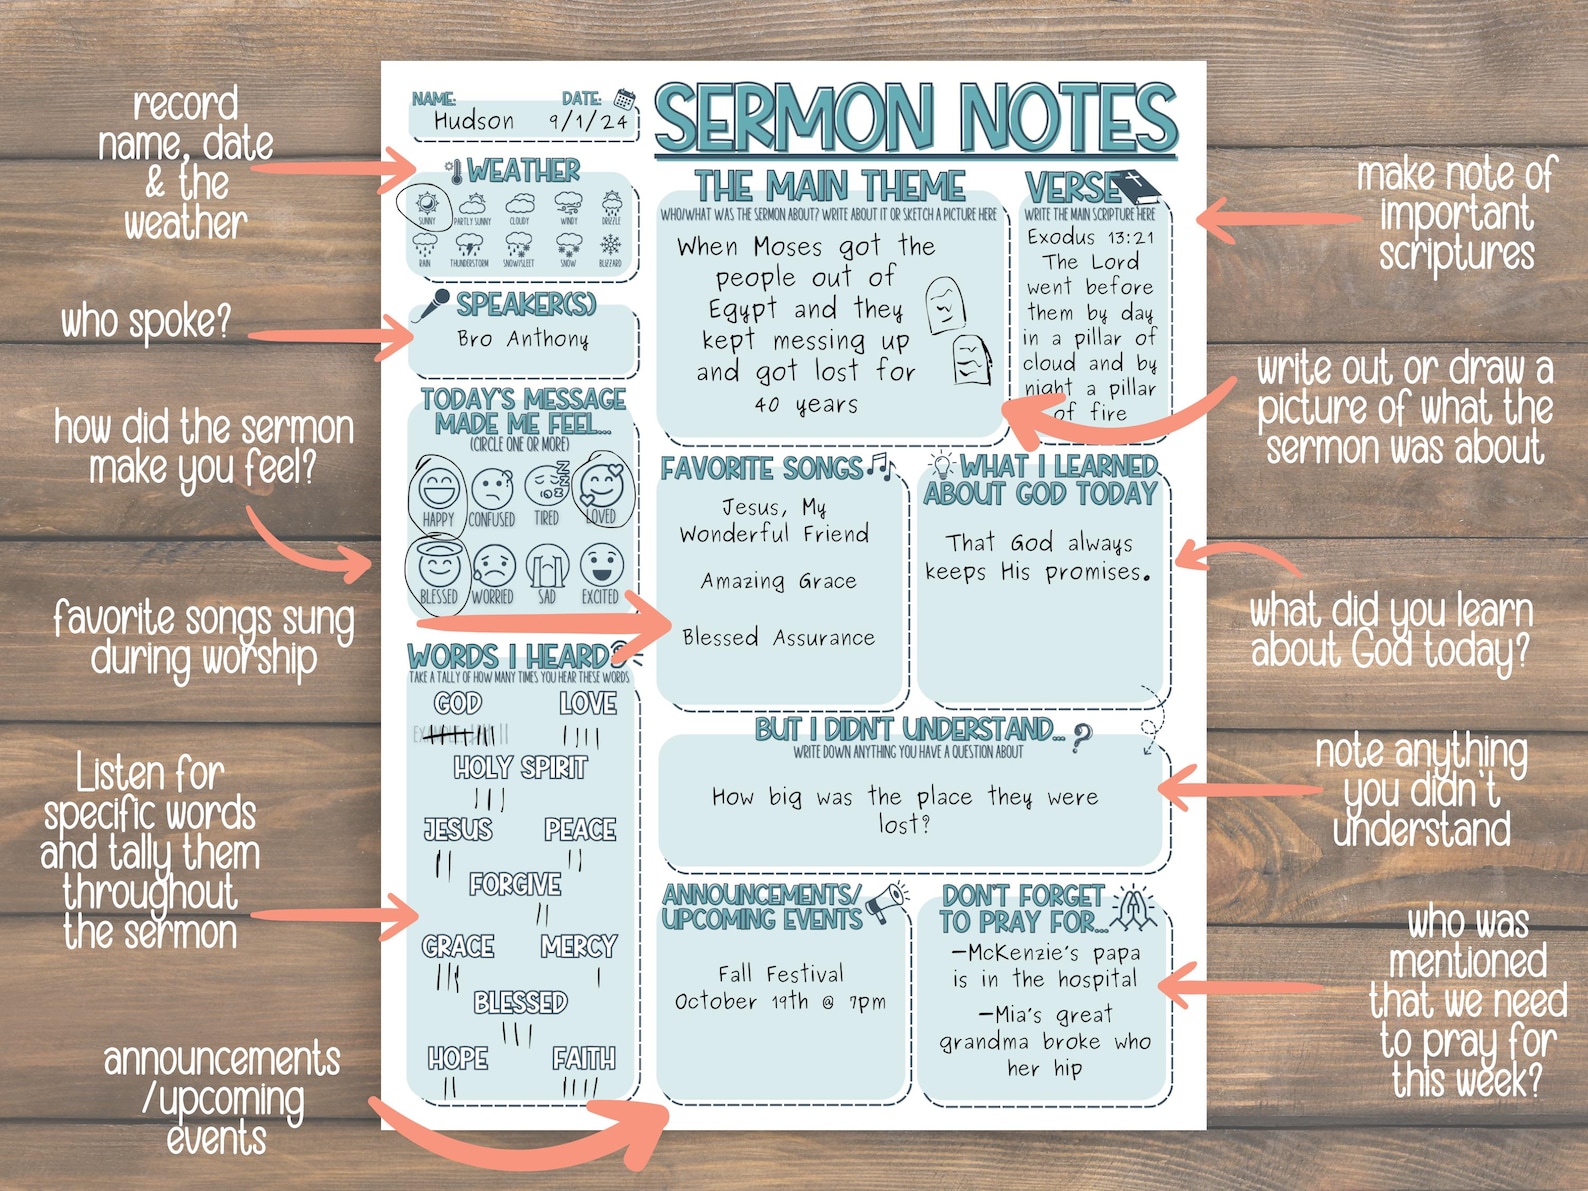 record
name, date
& the
weather
who spoke?
how did the sermon
make you feel?
favorite songs sung
during worship
Listen for
specific words
and tally them
throughout
the sermon
announcements
/upcoming
events
NAME:
DATE:
Hudson 9/1/24
SERMON NOTES
WEATHER
SUNNY PARTLY SUNNY CLOUDY WINDY DRIZZLE
RAIN THUNDERSTORM SNOW/SLEET SNOW BLIZZARD
SPEAKER(S)
Bro Anthony
TODAY'S MESSAGE
MADE ME FEEL...
(CIRCLE ONE OR MORE)
HAPPY CONFUSED TIRED LOVED
BLESSED WORRIED SAD EXCITED
WORDS I HEARD
TAKE A TALLY OF HOW MANY TIMES YOU HEAR THESE WORDS
GOD LOVE
HOLY SPIRIT
JESUS PEACE
FORGIVE
GRACE MERCY
BLESSED
HOPE FAITH
THE MAIN THEME
WHO/WHAT WAS THE SERMON ABOUT? WRITE ABOUT IT OR SKETCH A PICTURE HERE
When Moses got the
people out of
Egypt and they
kept messing up
and got lost for
40 years
VERSE
WRITE THE MAIN SCRIPTURE HERE
Exodus 13:21
The Lord
went before
them by day
in a pillar of
cloud and by
night a pillar
of fire
FAVORITE SONGS
Jesus, My
Wonderful Friend
Amazing Grace
Blessed Assurance
WHAT I LEARNED
ABOUT GOD TODAY
That God always
keeps His promises.
BUT I DIDN'T UNDERSTAND... ?
WRITE DOWN ANYTHING YOU HAVE A QUESTION ABOUT
How big was the place they were
lost?
ANNOUNCEMENTS/
UPCOMING EVENTS
Fall Festival
October 19th @ 7pm
DON'T FORGET
TO PRAY FOR...
-McKenzie's papa
is in the hospital
-Mia's great
grandma broke who
her hip
make note of
important
scriptures
write out or draw a
picture of what the
sermon was about
what did you learn
about God today?
note anything
you didn't
understand
who was
mentioned
that we need
to pray for
this week?